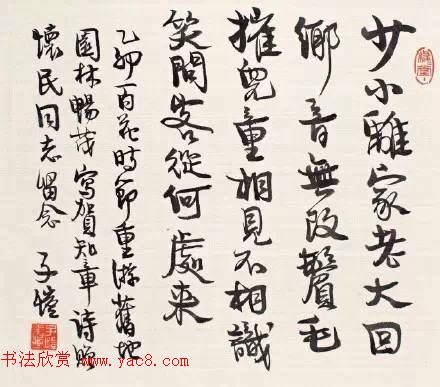 少小離家老大回
鄉音無改鬢毛
摧兒童相見不相識
笑問客從何處来
乙卯百花时節重游舊地
園林暢茂寫賀知章詩贈
懷民同志留念 子愷
书法欣赏 www.yac8.com